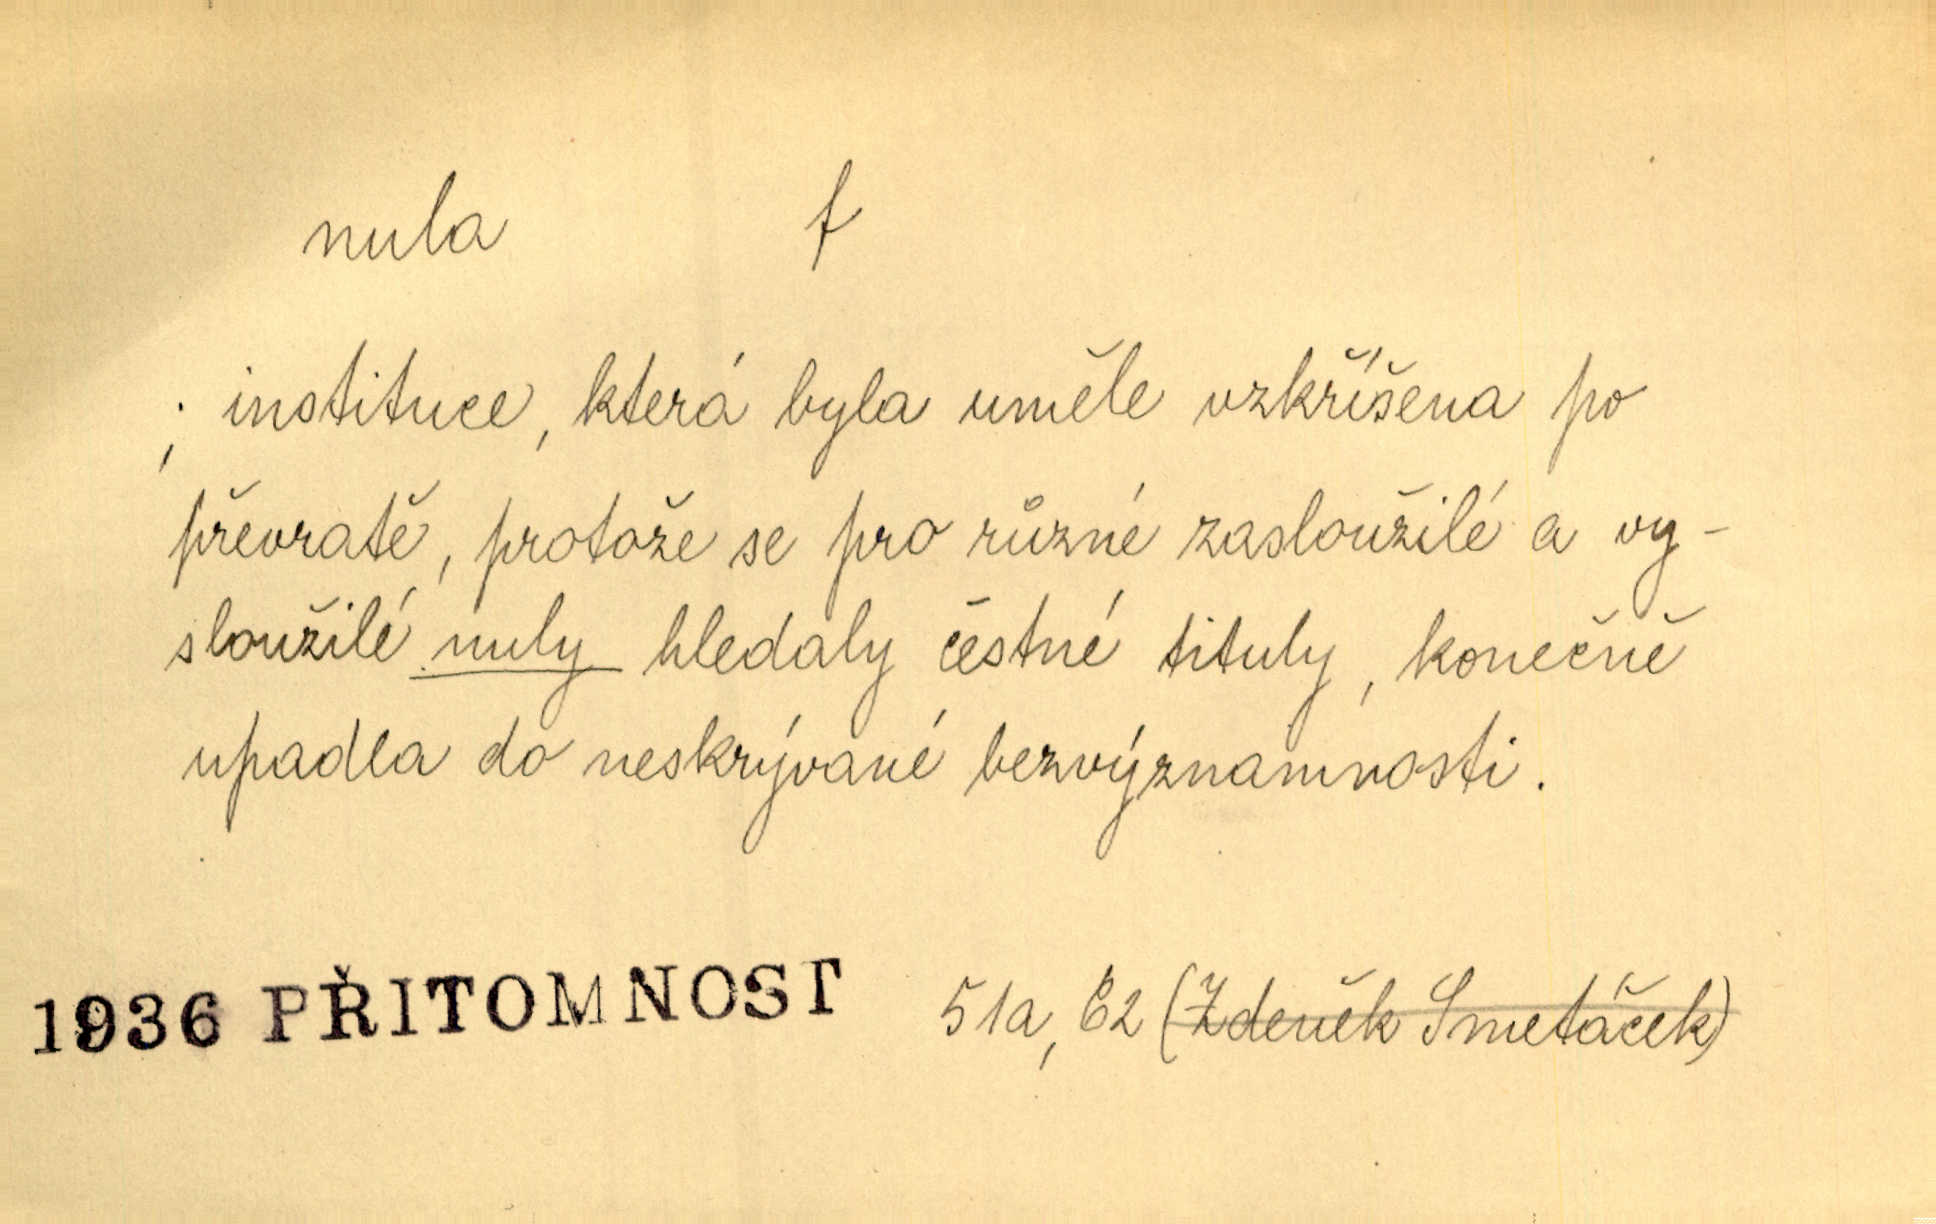 nula f
; instituce, která byla uměle vzkříšena po
převratě, protože se pro různé zasloužilé a vy-
sloužilé nuly hledaly čestné tituly, konečně
upadla do neskrývané bezvýznamnosti.
1936 PŘITOMNOST 51a, E2 (Zdeněk Smetáček)